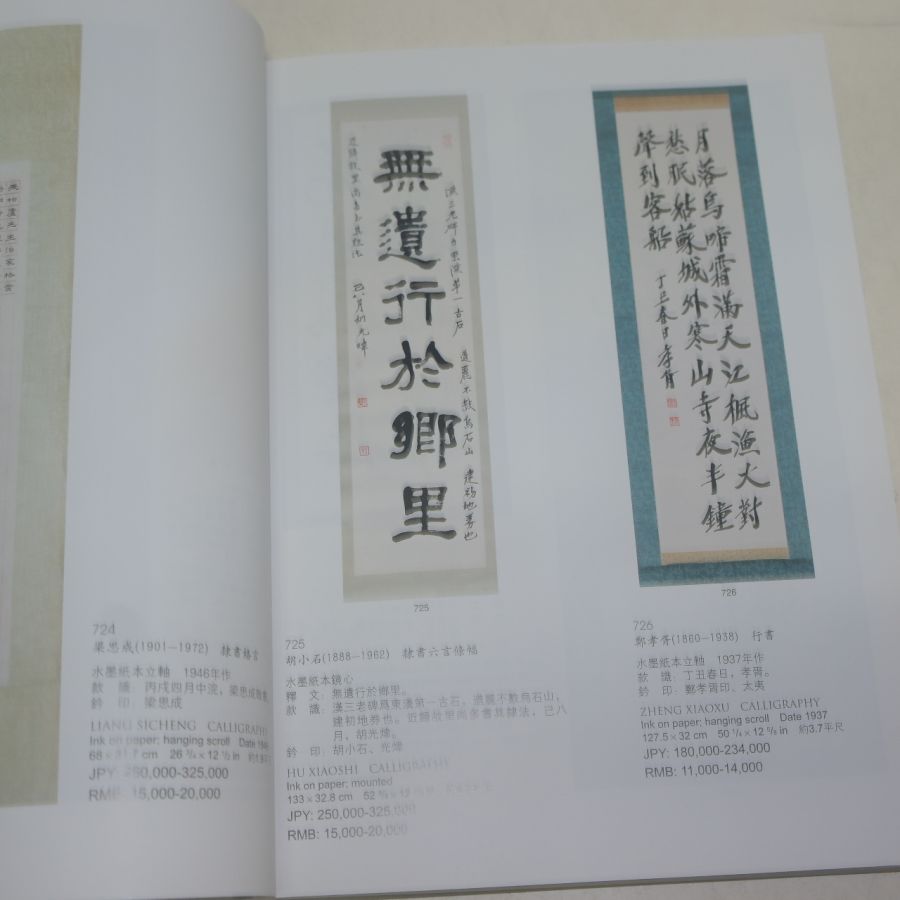 朱柏廬先生治家格言
724
梁思成(1901－1972)　隸書格言
水墨紙本立軸　1946年作
款　識：丙戌四月中浣，梁思成
鈐　印：梁思成
LIANG SICHENG　CALLIGRAPHY
Ink on paper; hanging scroll　Date
JPY: 250,000-325,000
RMB: 15,000-20,000
漢三老碑為東漢第一古石
遒麗不數烏石山　建初地券也
無遺行於鄉里
近歸故里尚多會其隸法
己八月胡光煒
725
725
胡小石(1888－1962)　隸書六言條幅
水墨紙本鏡心
釋　文：無遺行於鄉里。
款　識：漢三老碑爲東漢第一古石。遒麗不數烏石山，
建初地券也。近歸故里尚多會其隸法，己八
月，胡光煒。
鈐　印：胡小石、光煒
HU XIAOSHI　CALLIGRAPHY
Ink on paper; mounted
133×32.8 cm
JPY: 250,000-325,000
RMB: 15,000-20,000
月落烏啼霜滿天江楓漁火對
愁眠姑蘇城外寒山寺夜半鐘
聲到客船
丁丑春日孝胥
726
726
鄭孝胥(1860－1938)　行書
水墨紙本立軸　1937年作
款　識：丁丑春日，孝胥。
鈐　印：鄭孝胥印、太夷
ZHENG XIAOXU　CALLIGRAPHY
Ink on paper; hanging scroll　Date 1937
127.5×32 cm　50 1/4×12 5/8 in　約3.7平尺
JPY: 180,000-234,000
RMB: 11,000-14,000